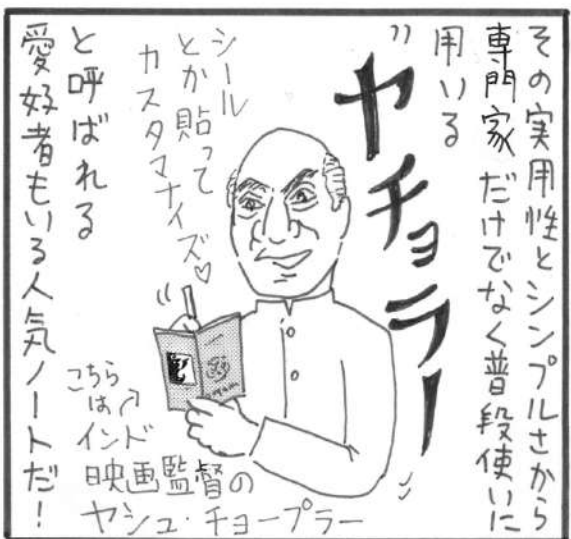 その実用性とシンプルさから
専門家だけでなく普段使いに
用いる
"ヤチョラー"
シール
とか貼って
カスタマナイズ♡
と呼ばれる
愛好者もいる人気ノートだ!
こちら
は
インド
映画監督の
ヤシュ・チョープラー